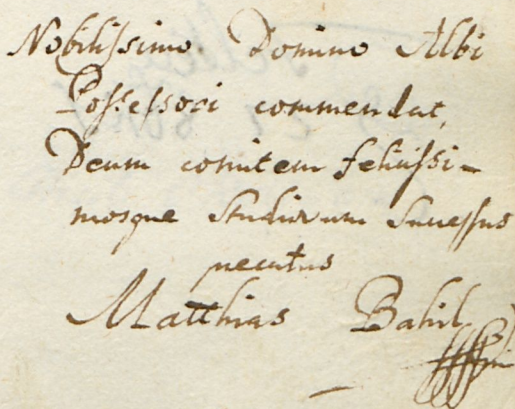 Nobilissimo Domino Albi
Possessori commendat,
Deum comitem felicissi-
mosque Studiorum Successus
precatus
Matthias Bahil